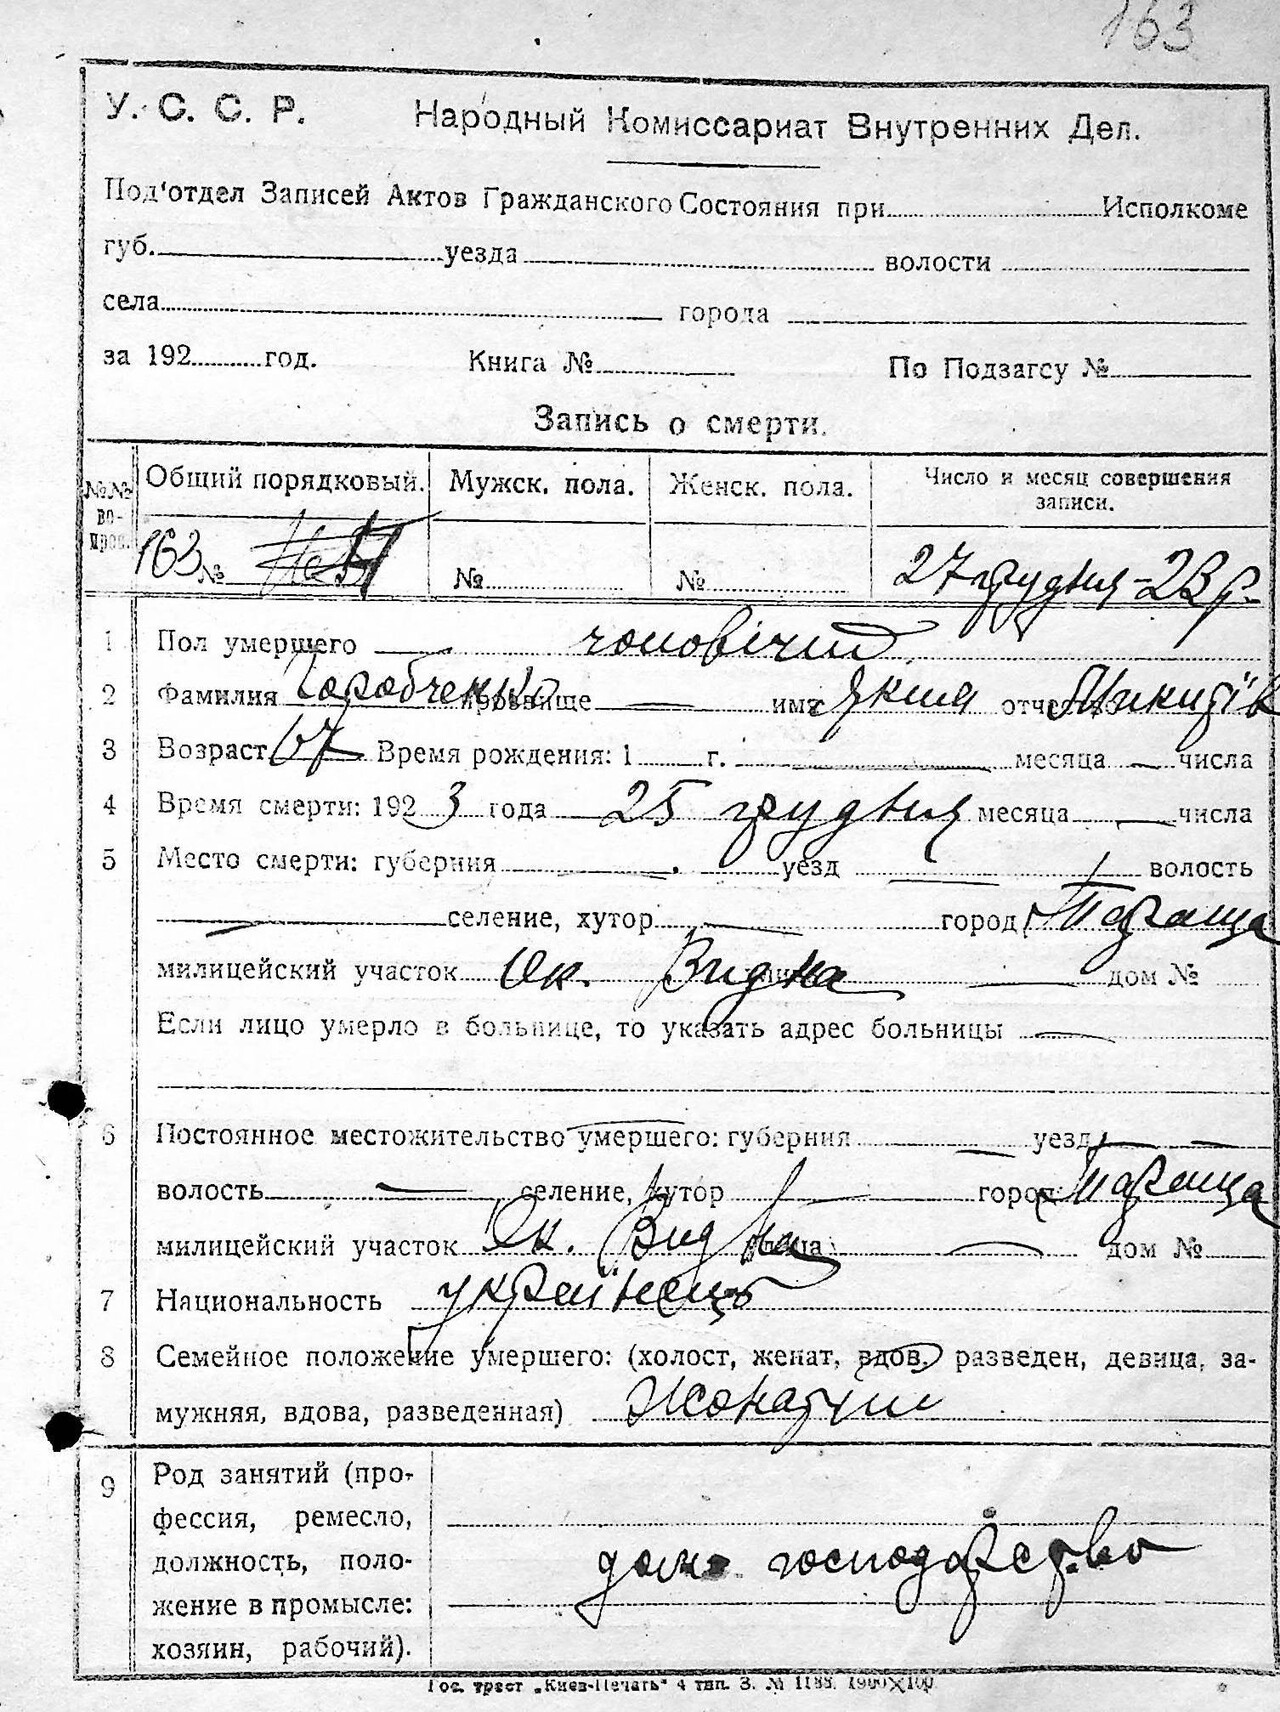 163
У. С. С. Р. Народный Комиссариат Внутренних Дел.
Под'отдел Записей Актов Гражданского Состояния при Исполкоме
губ. уезда волости
села города
за 192 год. Книга № По Подзагсу №
Запись о смерти.
№№ во-прос. Общий порядковый. Мужск. пола. Женск. пола. Число и месяц совершения записи.
163 № № № 27 грудня - 23 р.
1 Пол умершего чоловічий
2 Фамилия прозвище — имя Яким отчество Микитів
3 Возраст 67 Время рождения: 1 г. — месяца — числа
4 Время смерти: 1923 года 25 грудня месяца — числа
5 Место смерти: губерния — уезд — волость
— селение, хутор — город Тараща
милицейский участок Ок. — дом №
Если лицо умерло в больнице, то указать адрес больницы —
6 Постоянное местожительство умершего: губерния — уезд —
волость — селение, хутор — город Тараща
милицейский участок Ок. улица — дом №
7 Национальность українець
8 Семейное положение умершего: (холост, женат, вдов. разведен, девица, за-
мужняя, вдова, разведенная) Жонатий
9 Род занятий (про-
фессия, ремесло,
должность, поло-
жение в промысле:
хозяин, рабочий).
дом. господарство
Гос. трест „Киев-Печать“ 4 тип. З. № 1188. 1900×100